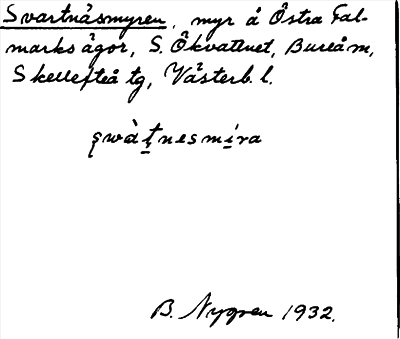 Svartnäsmyren, myr å Östra Fal-
marks ägor, S. Ökvattnet, Bureå sn,
Skellefteå tg, Västerb. l.
swàṭnesmíra
B. Nygren 1932.